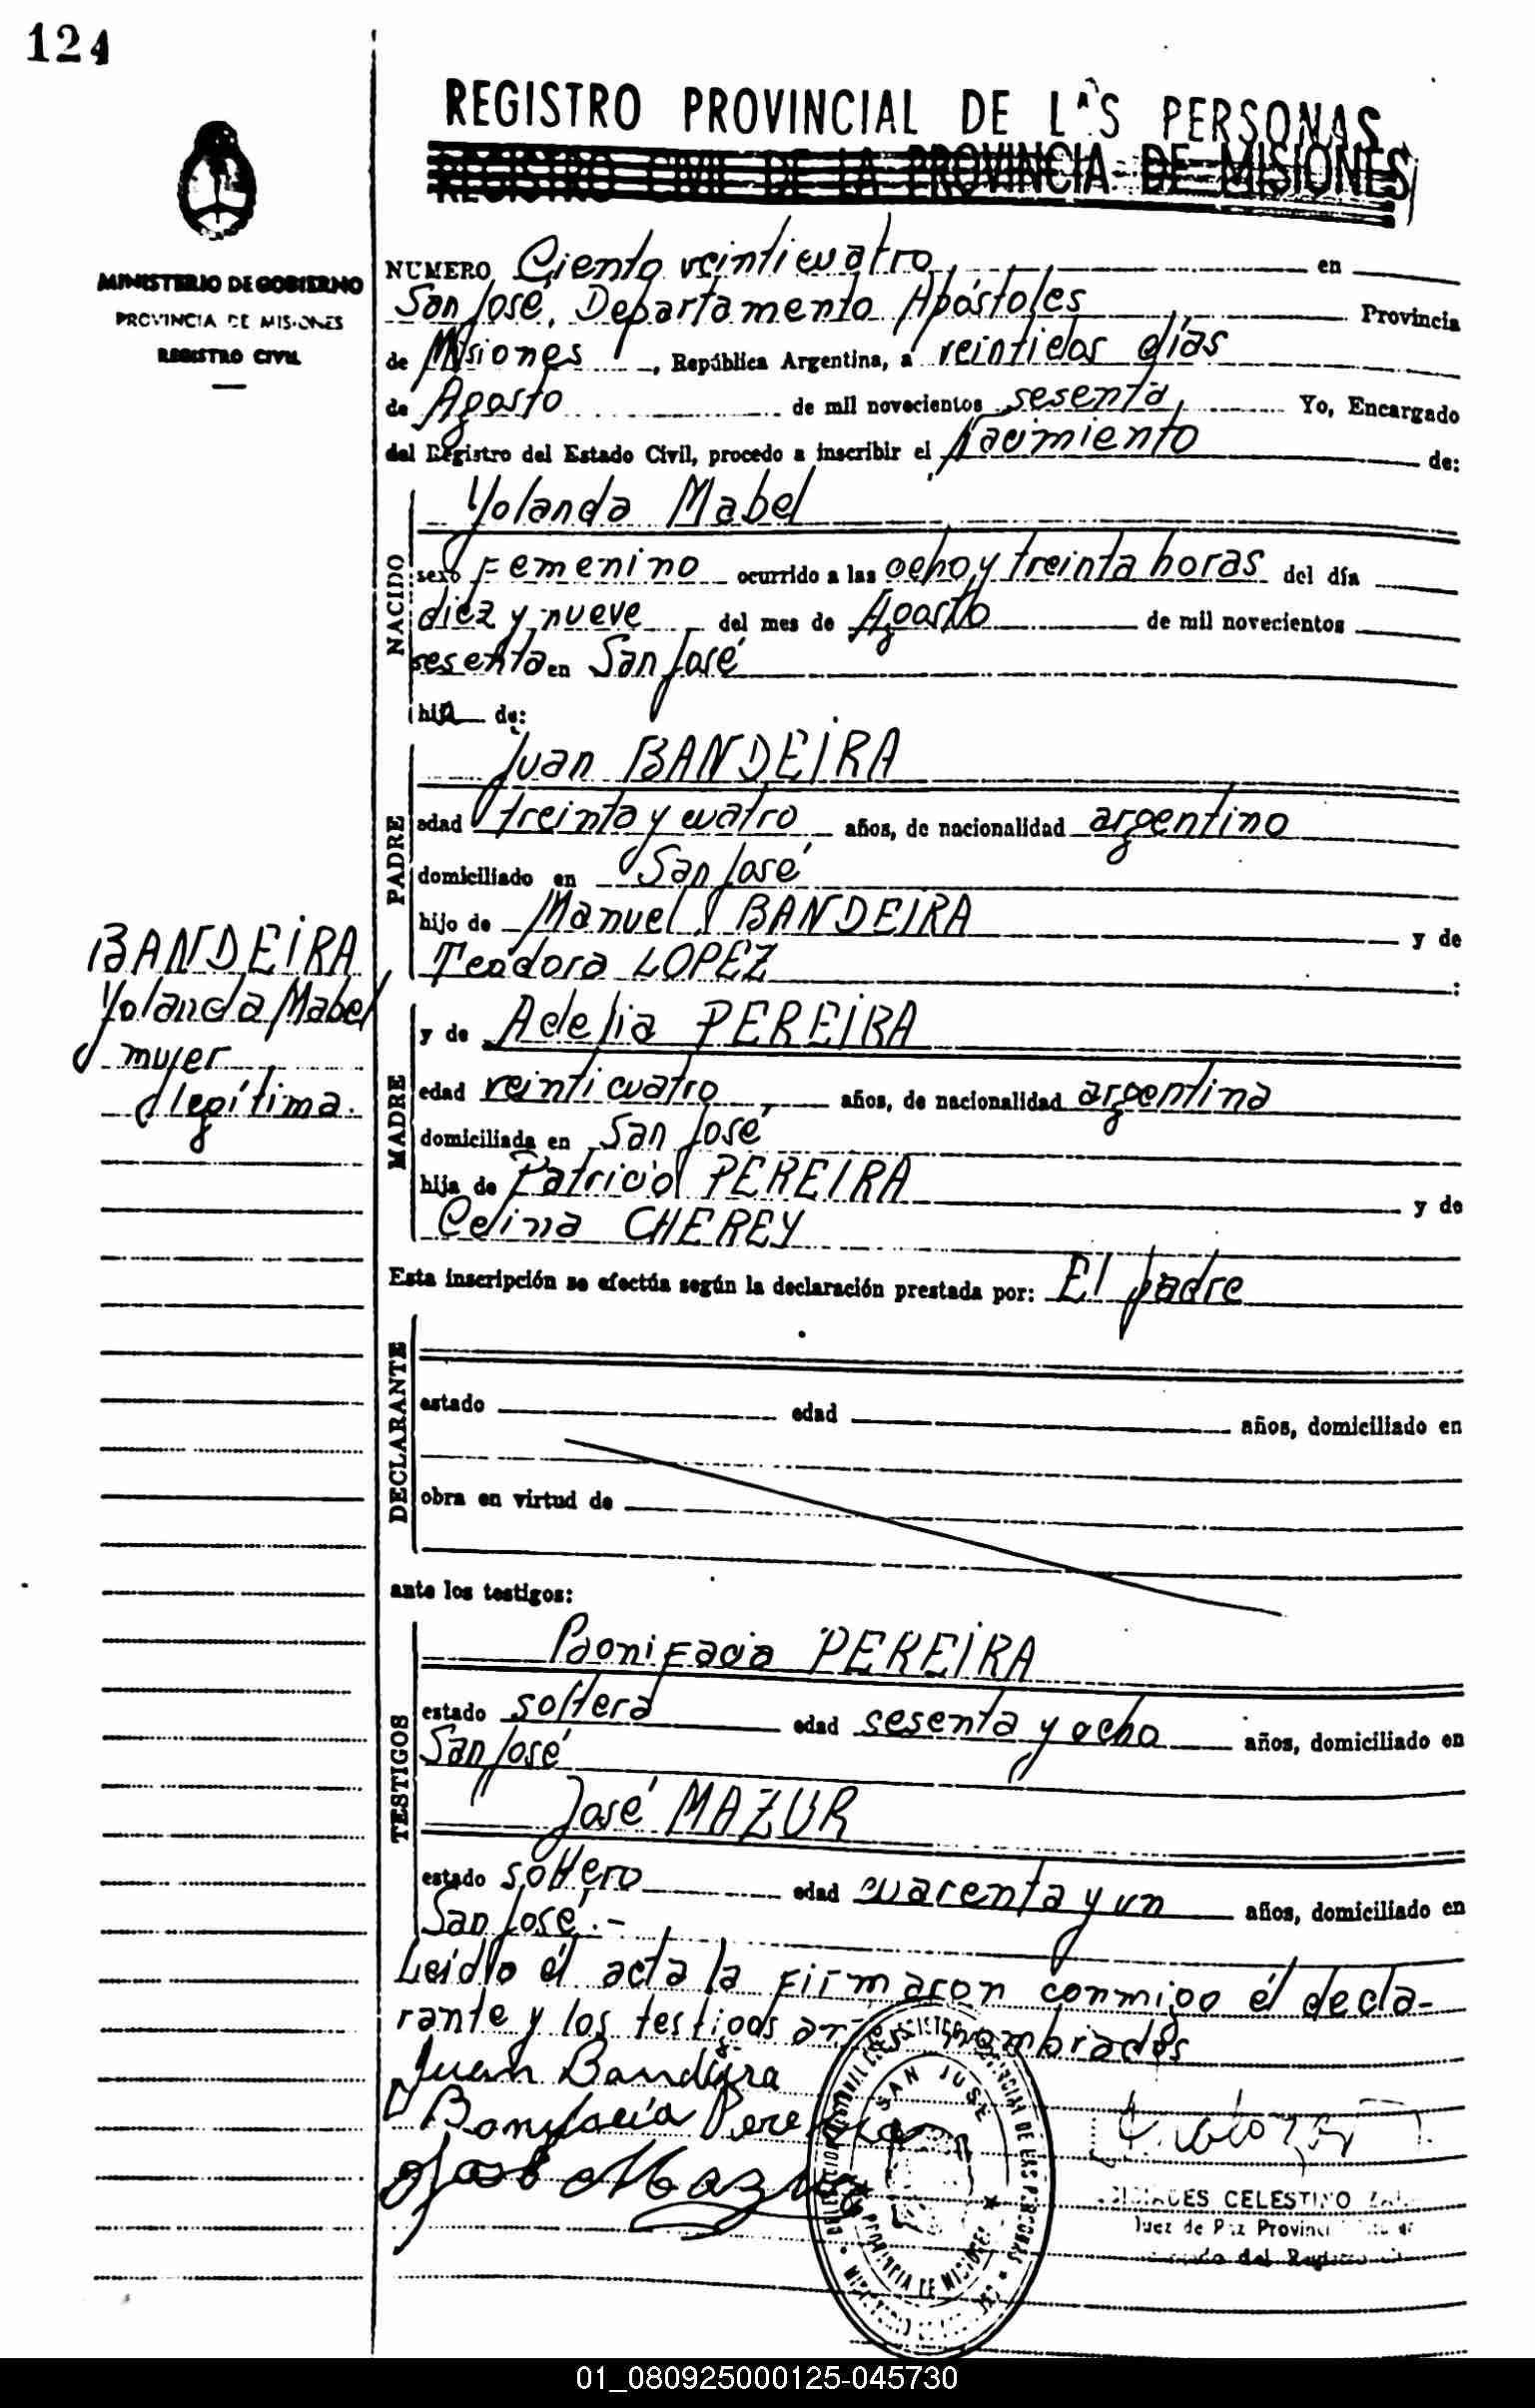 124
REGISTRO PROVINCIAL DE LAS PERSONAS
REGISTRO CIVIL DE LA PROVINCIA DE MISIONES
MINISTERIO DE GOBIERNO
PROVINCIA DE MISIONES
REGISTRO CIVIL
NUMERO Ciento veinticuatro en
San José, Departamento Apóstoles Provincia
de Misiones, República Argentina, a veintidos días
de Agosto de mil novecientos sesenta, Yo, Encargado
del Registro del Estado Civil, procedo a inscribir el Nacimiento de:
NACIDO
Yolanda Mabel
sexo Femenino ocurrido a las ocho y treinta horas del día
diez y nueve del mes de Agosto de mil novecientos
sesenta en San José
hija de:
PADRE
Juan BANDEIRA
edad treinta y cuatro años, de nacionalidad argentino
domiciliado en San José
hijo de Manuel BANDEIRA y de
Teodora LOPEZ :
BANDEIRA
Yolanda Mabel
mujer
legítima.
MADRE
y de Adelia PEREIRA
edad veinticuatro, años, de nacionalidad argentina
domiciliada en San José
hija de Patricio PEREIRA y de
Celina CHEREY
Esta inscripción se efectúa según la declaración prestada por: El padre
DECLARANTE
estado edad años, domiciliado en
obra en virtud de
ante los testigos:
TESTIGOS
Bonifacia PEREIRA
estado soltera edad sesenta y ocho años, domiciliado en
San José
José MAZUR
estado soltero edad cuarenta y un años, domiciliado en
San José.-
Leído él acta la firmaron conmigo él decla-
rante y los testigos nombrados
Juan Bandeira
Bonifacia Pereira
José Mazur
SAN JOSE
PROVINCIA DE MISIONES
DE LAS PERSONAS
CELESTINO
Juez de Paz
del Registro
01_080925000125-045730